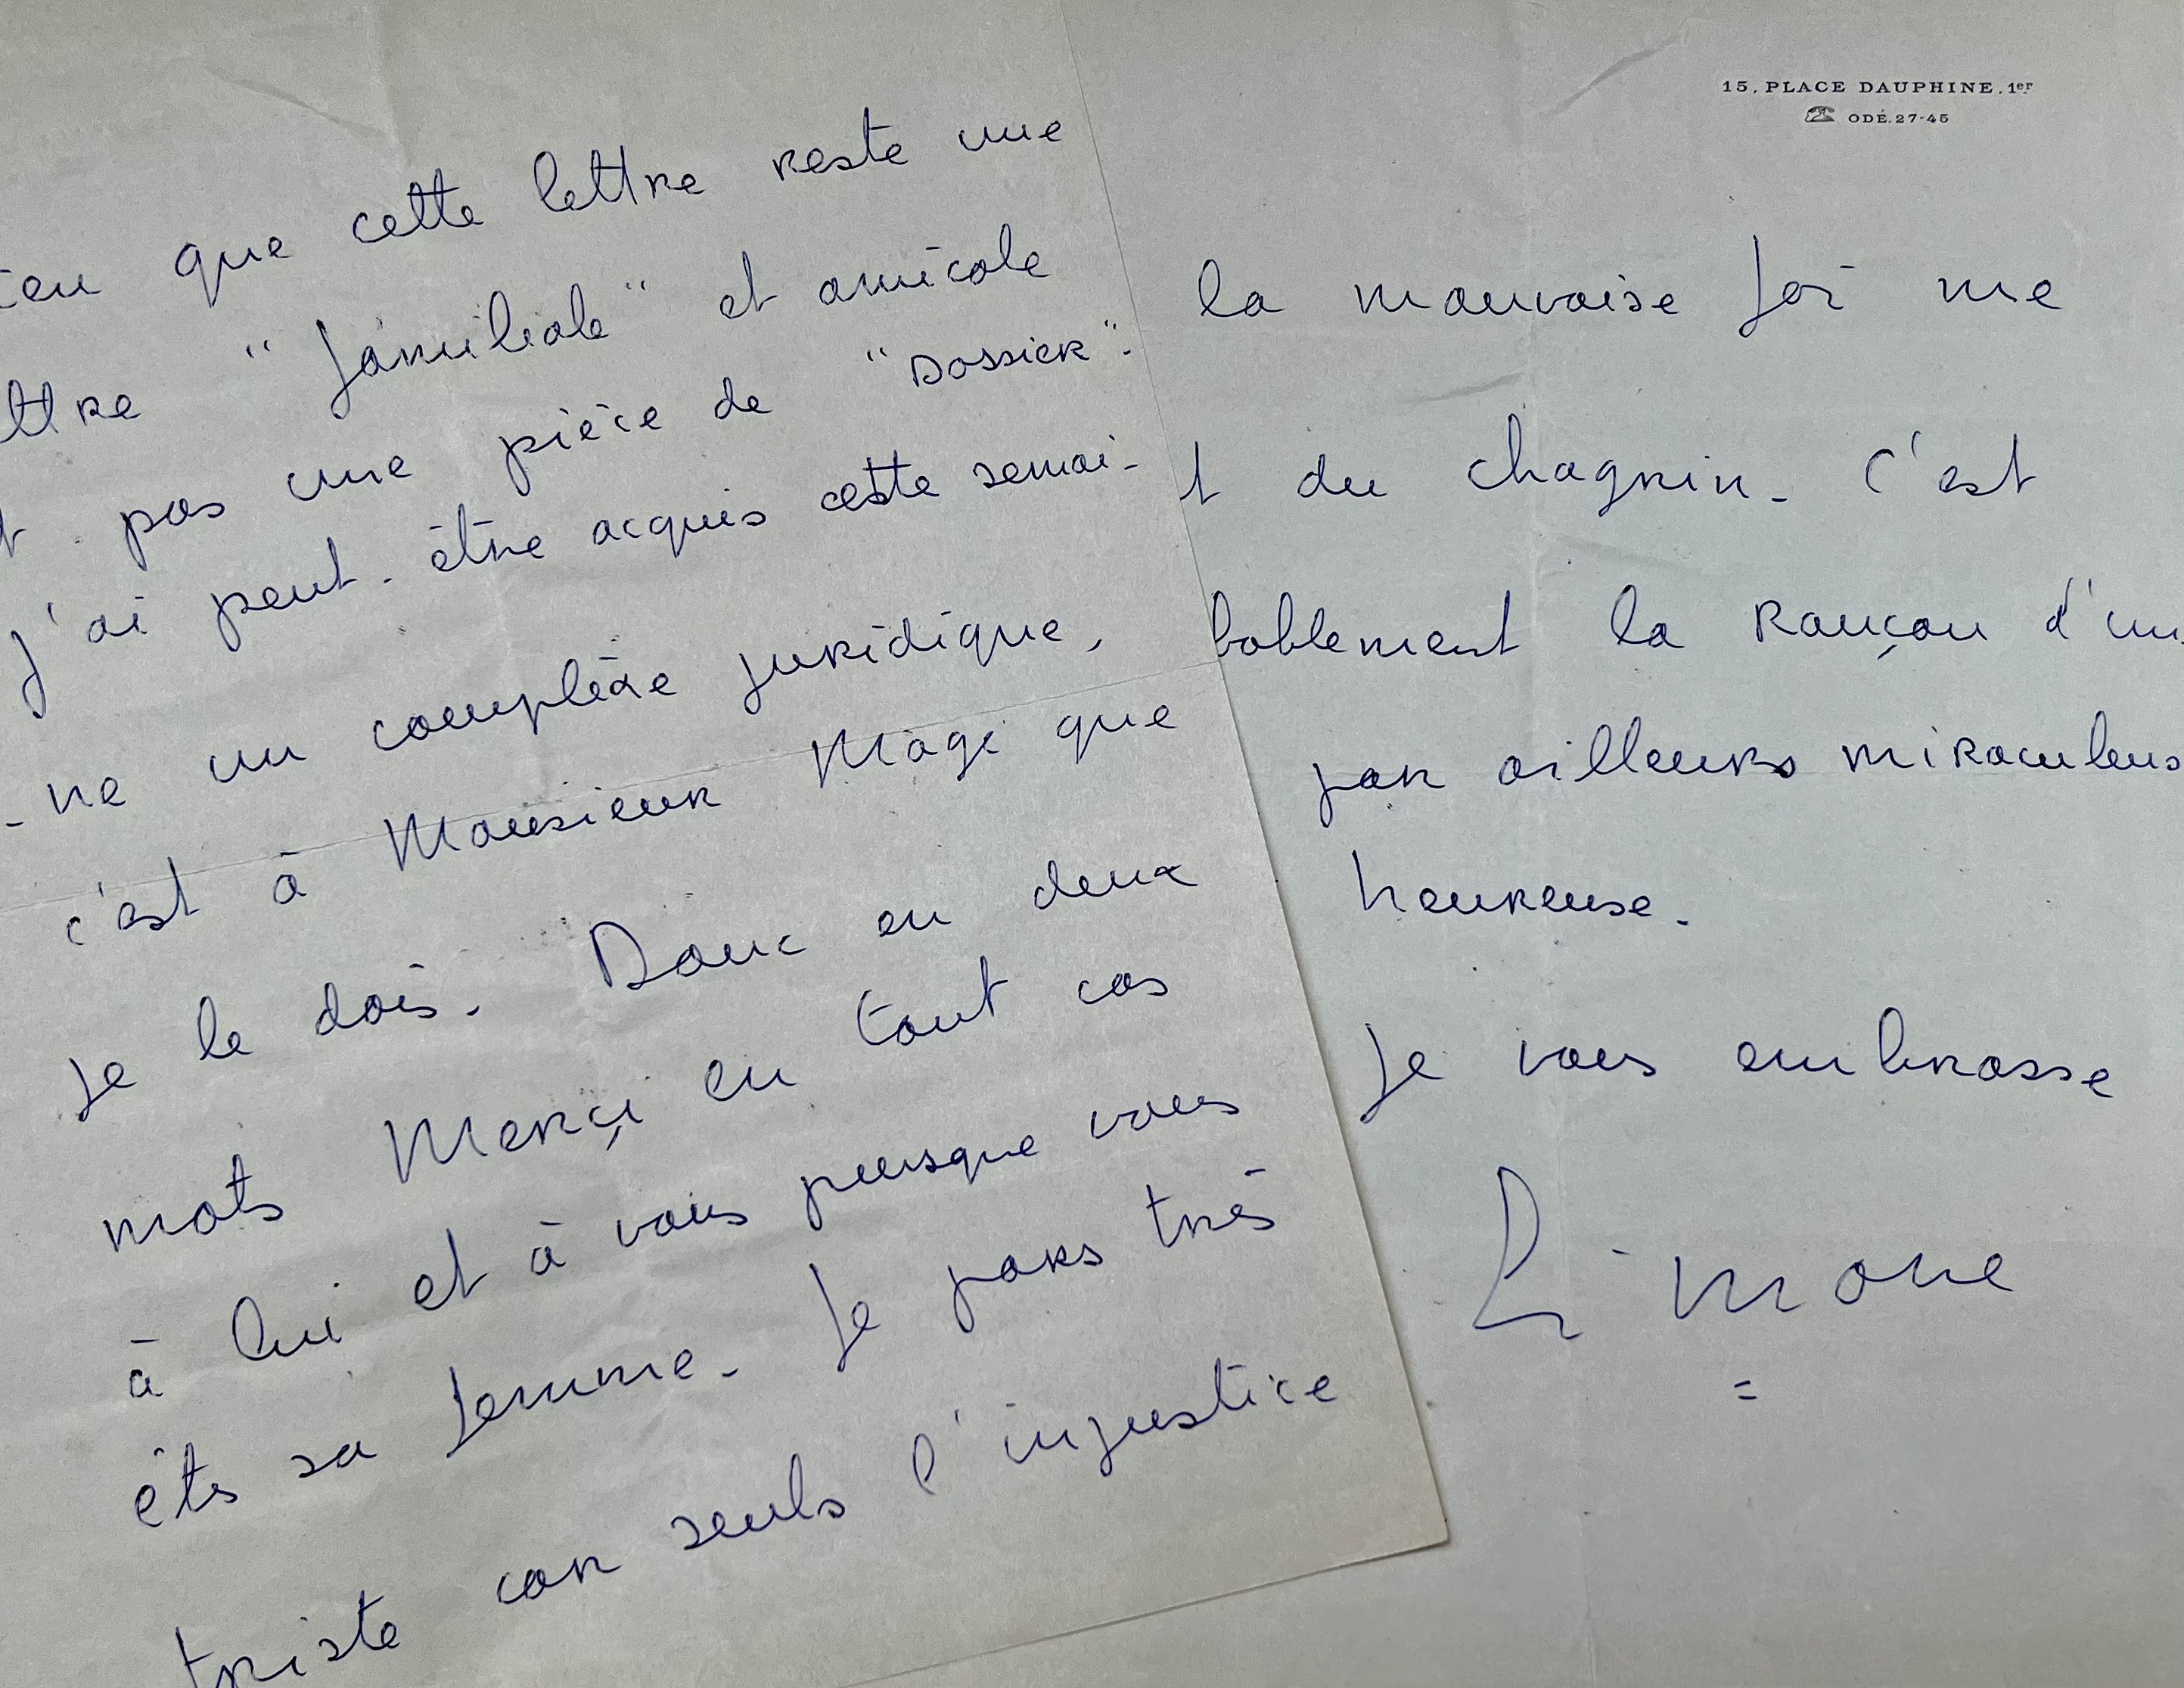 ien que cette lettre reste une
ttre "familiale" et amicale
t pas une pièce de "Dossier".
J'ai peut-être acquis cette semai-
-ne un complèxe juridique,
c'est à Monsieur Magi que
je le dois. Donc en deux
mots Merçi en tout cas
à lui et à vous puisque vous
êts sa femme. Je pars très
triste car seuls l'injustice
15, PLACE DAUPHINE. 1er
ODÉ. 27-45
la mauvaise foi me
t du chagrin. C'est
bablement la Rançon d'un
par ailleurs miraculeus
heureuse.
Je vous embrasse
Simone